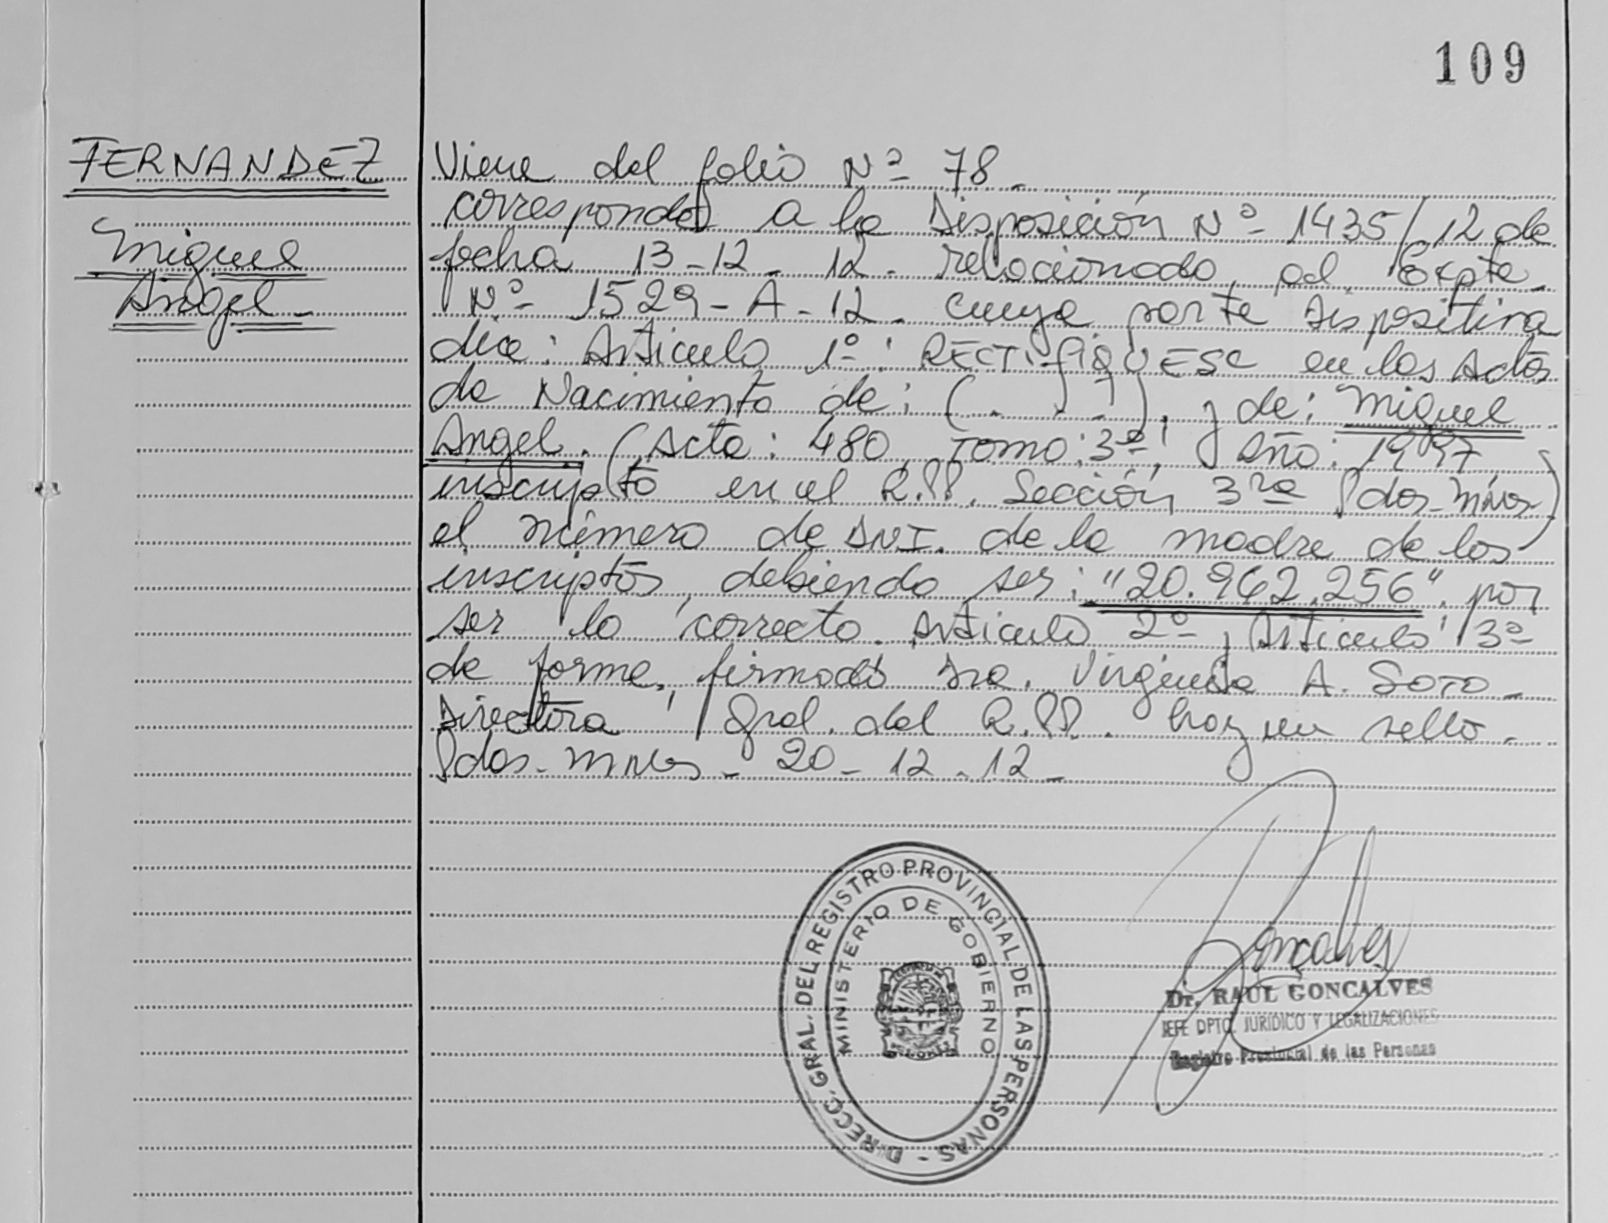 109
FERNANDEZ
Miguel
Angel -
Viene del folio Nº 78 -
corresponde a la Disposición Nº 1435/12 de
fecha 13-12-12. relacionado al Expte.
Nº 1529-A-12. cuya parte dispositiva
dice: Articulo 1º: RECTIFIQUESE en las Actas
de Nacimiento de: (. . .), y de: Miguel
Angel. (Acta: 480, Tomo: 3º, Año: 1997,
inscripto en el R.PP. Sección 3ra Pdas-Mnes)
el número de DNI. de la madre de los
inscriptos, debiendo ser: "20.962.256". por
ser lo correcto. Articulo 2º y Articulo 3º
de forma, firmado Dra. Virginia A. SOTO -
Directora Gral. del R.PP. hay un sello.
Pdas-Mnes - 20-12-12 -
DIRECC. GRAL. DEL REGISTRO PROVINCIAL DE LAS PERSONAS -
MINISTERIO DE GOBIERNO
MISIONES
Goncalves
Dr. RAUL GONCALVES
JEFE DPTO. JURIDICO Y LEGALIZACIONES
Registro Provincial de las Personas